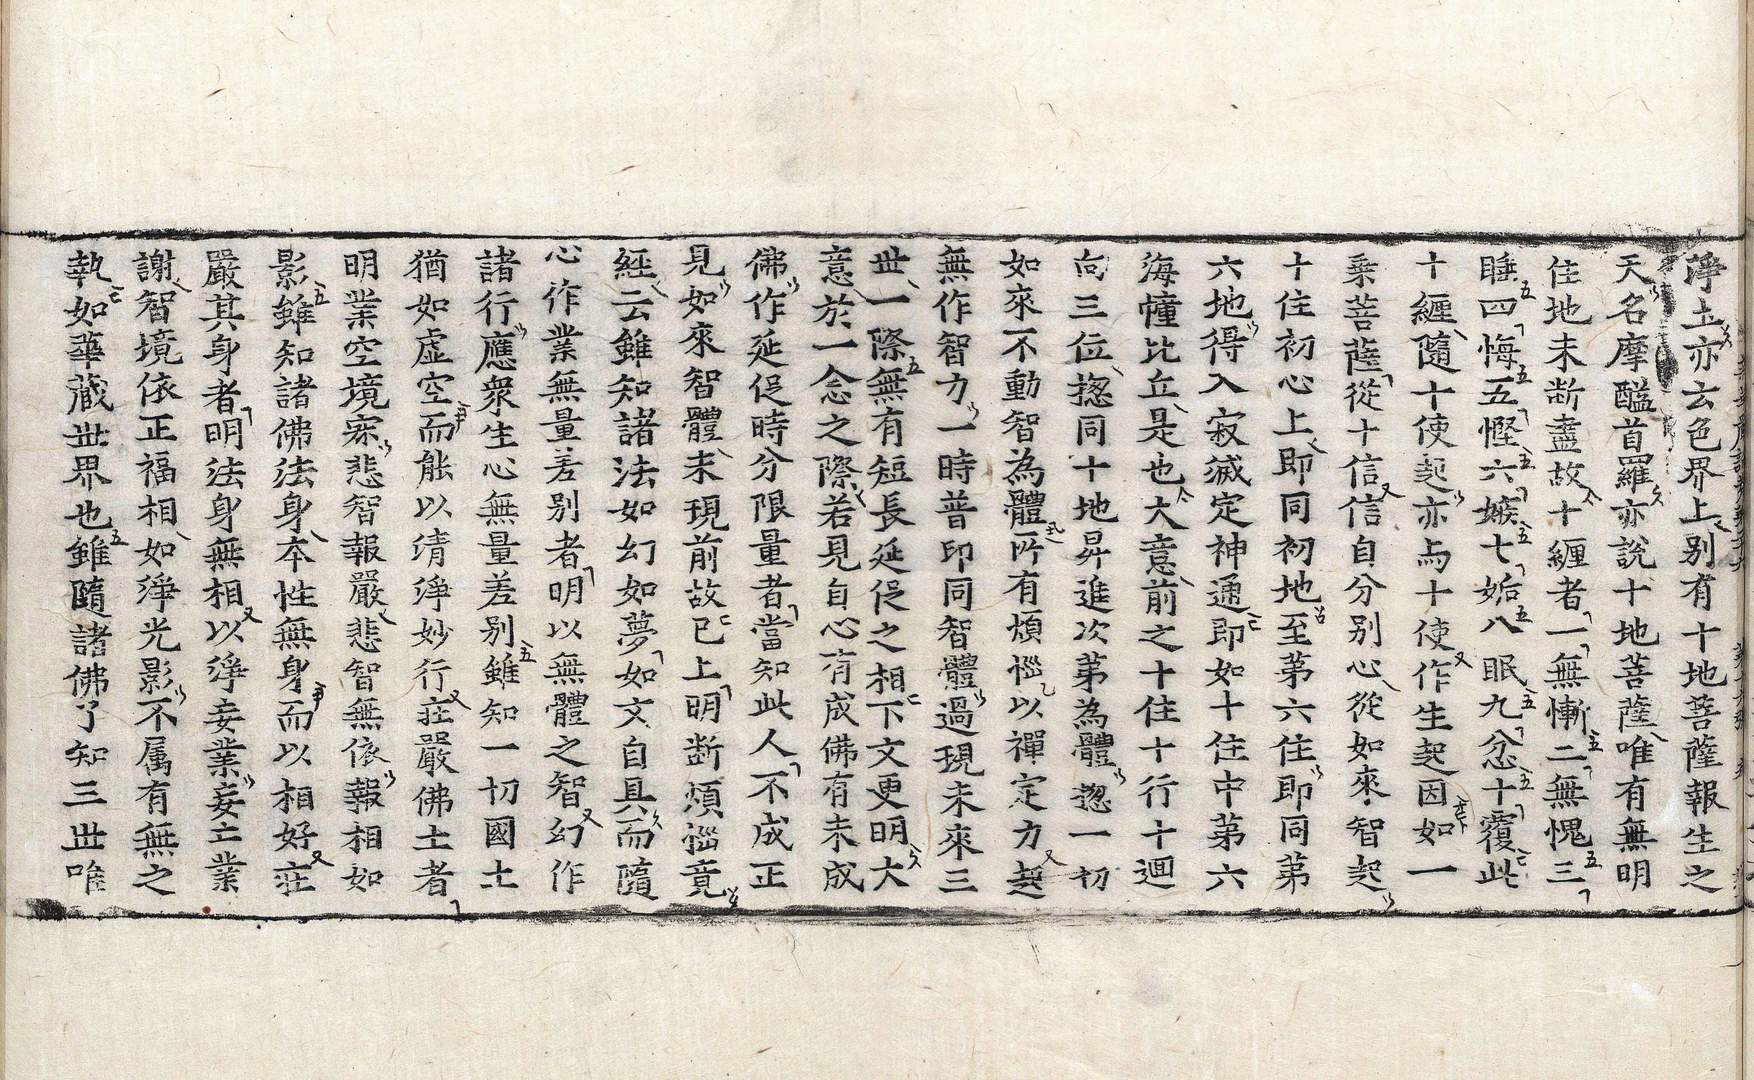 淨土亦云色界上別有十地菩薩報生之
天名摩醯首羅亦說十地菩薩唯有無明
住地未断盡故十纒者一無慚二無愧三
睡四悔五慳六嫉七姤八眠九忿十覆此
十纒隨十使起亦与十使作生起因如一
乗菩薩從十信信自分別心從如來智起
十住初心上即同初地至第六住即同第
六地得入寂滅定神通即如十住中第六
海幢比丘是也大意前之十住十行十迴
向三位揔同十地昇進次第為體揔一切
如來不動智為體所有煩惱以禪定力起
無作智力一時普印同智體過現未來三
世一際無有短長延促之相下文更明大
意於一念之際若見自心有成佛有未成
佛作延促時分限量者當知此人不成正
見如來智體未現前故已上明断煩惱竟
經云雖知諸法如幻如夢如文自具而隨
心作業無量差別者明以無體之智幻作
諸行應衆生心無量差別雖知一切國土
猶如虚空而能以清淨妙行莊嚴佛土者
明業空境寂悲智報嚴悲智無依報相如
影雖知諸佛法身本性無身而以相好莊
嚴其身者明法身無相以淨妄業妄亡業
謝智境依正福相如淨光影不属有無之
執如華藏世界也雖隨諸佛了知三世唯